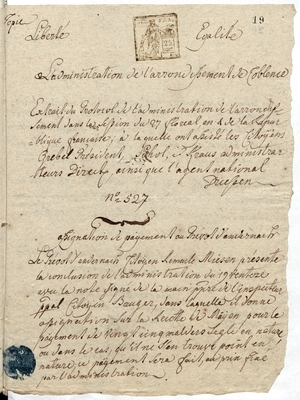 Copie
19
Liberté Egalité
L'administration de l'arrondissement de Coblence
Extrait du Protocol de l'administration de l'arrondis
sement dans la session du 27 floreal an 4 de la Repu
blique française, à la quelle ont assisté les Citoyens
Grebel Président, Kraus administra
teurs ainsi que l'agent national
No. 527
assignation de payement au Prevot d'andernach
Le Prevot d'andernach Citoyen presente
la conclusion de l'administration du 19 ventose
avec la note signée de la main de l'inspecteur
Citoyen dans laquelle il donne
assignation sur la Recette de Mayen pour le
payement de vingt cinq malters segle en nature
ou dans le cas, qu'il ne s'en trouve point en
nature, ce payement sera fait au prix fixé
par l'administration.